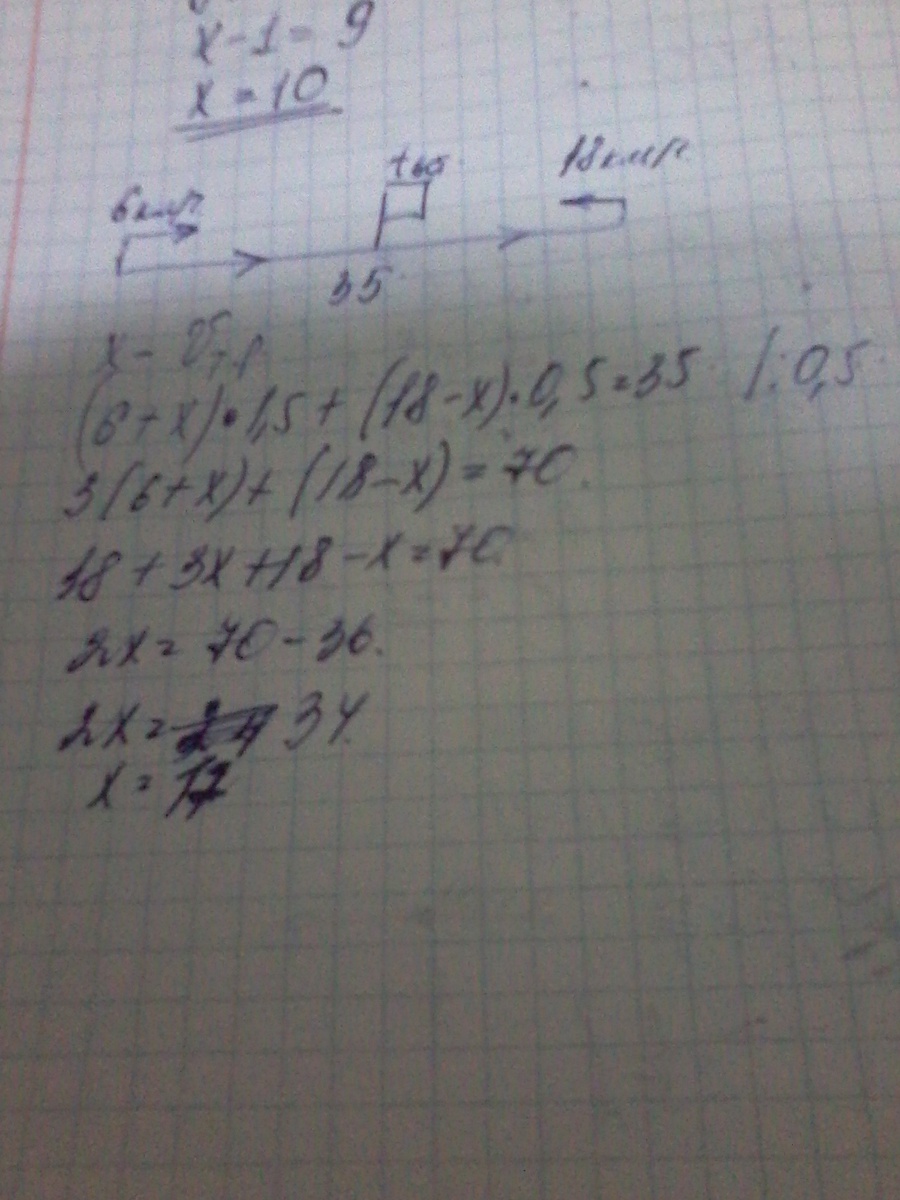 x - 1 = 9
x = 10
6 км/ч
18 км/ч
35
x -
(6 + x) • 1,5 + (18 - x) • 0,5 = 35 /: 0,5
3(6 + x) + (18 - x) = 70
18 + 3x + 18 - x = 70
2x = 70 - 36.
2x = 34.
x = 17